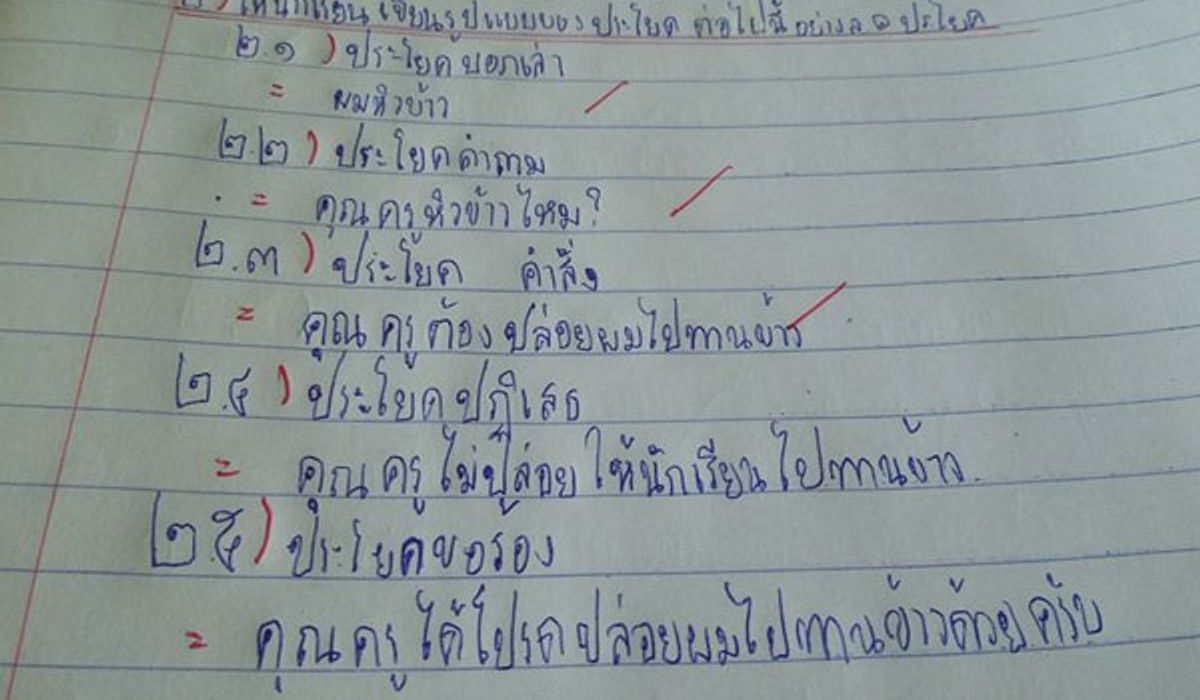 ๒) ให้นักเรียน เขียนรูปแบบของ ประโยค ต่อไปนี้ อย่างละ ๑ ประโยค
๒.๑) ประโยค บอกเล่า
= ผมหิวข้าว
๒.๒) ประโยคคำถาม
= คุณครูหิวข้าวไหม?
๒.๓) ประโยค คำสั่ง
= คุณครูต้องปล่อยผมไปทานข้าว
๒.๔) ประโยคปฏิเสธ
= คุณครูไม่ปล่อยให้นักเรียนไปทานข้าว.
๒.๕) ประโยคขอร้อง
= คุณครูได้โปรดปล่อยผมไปทานข้าวด้วยครับ